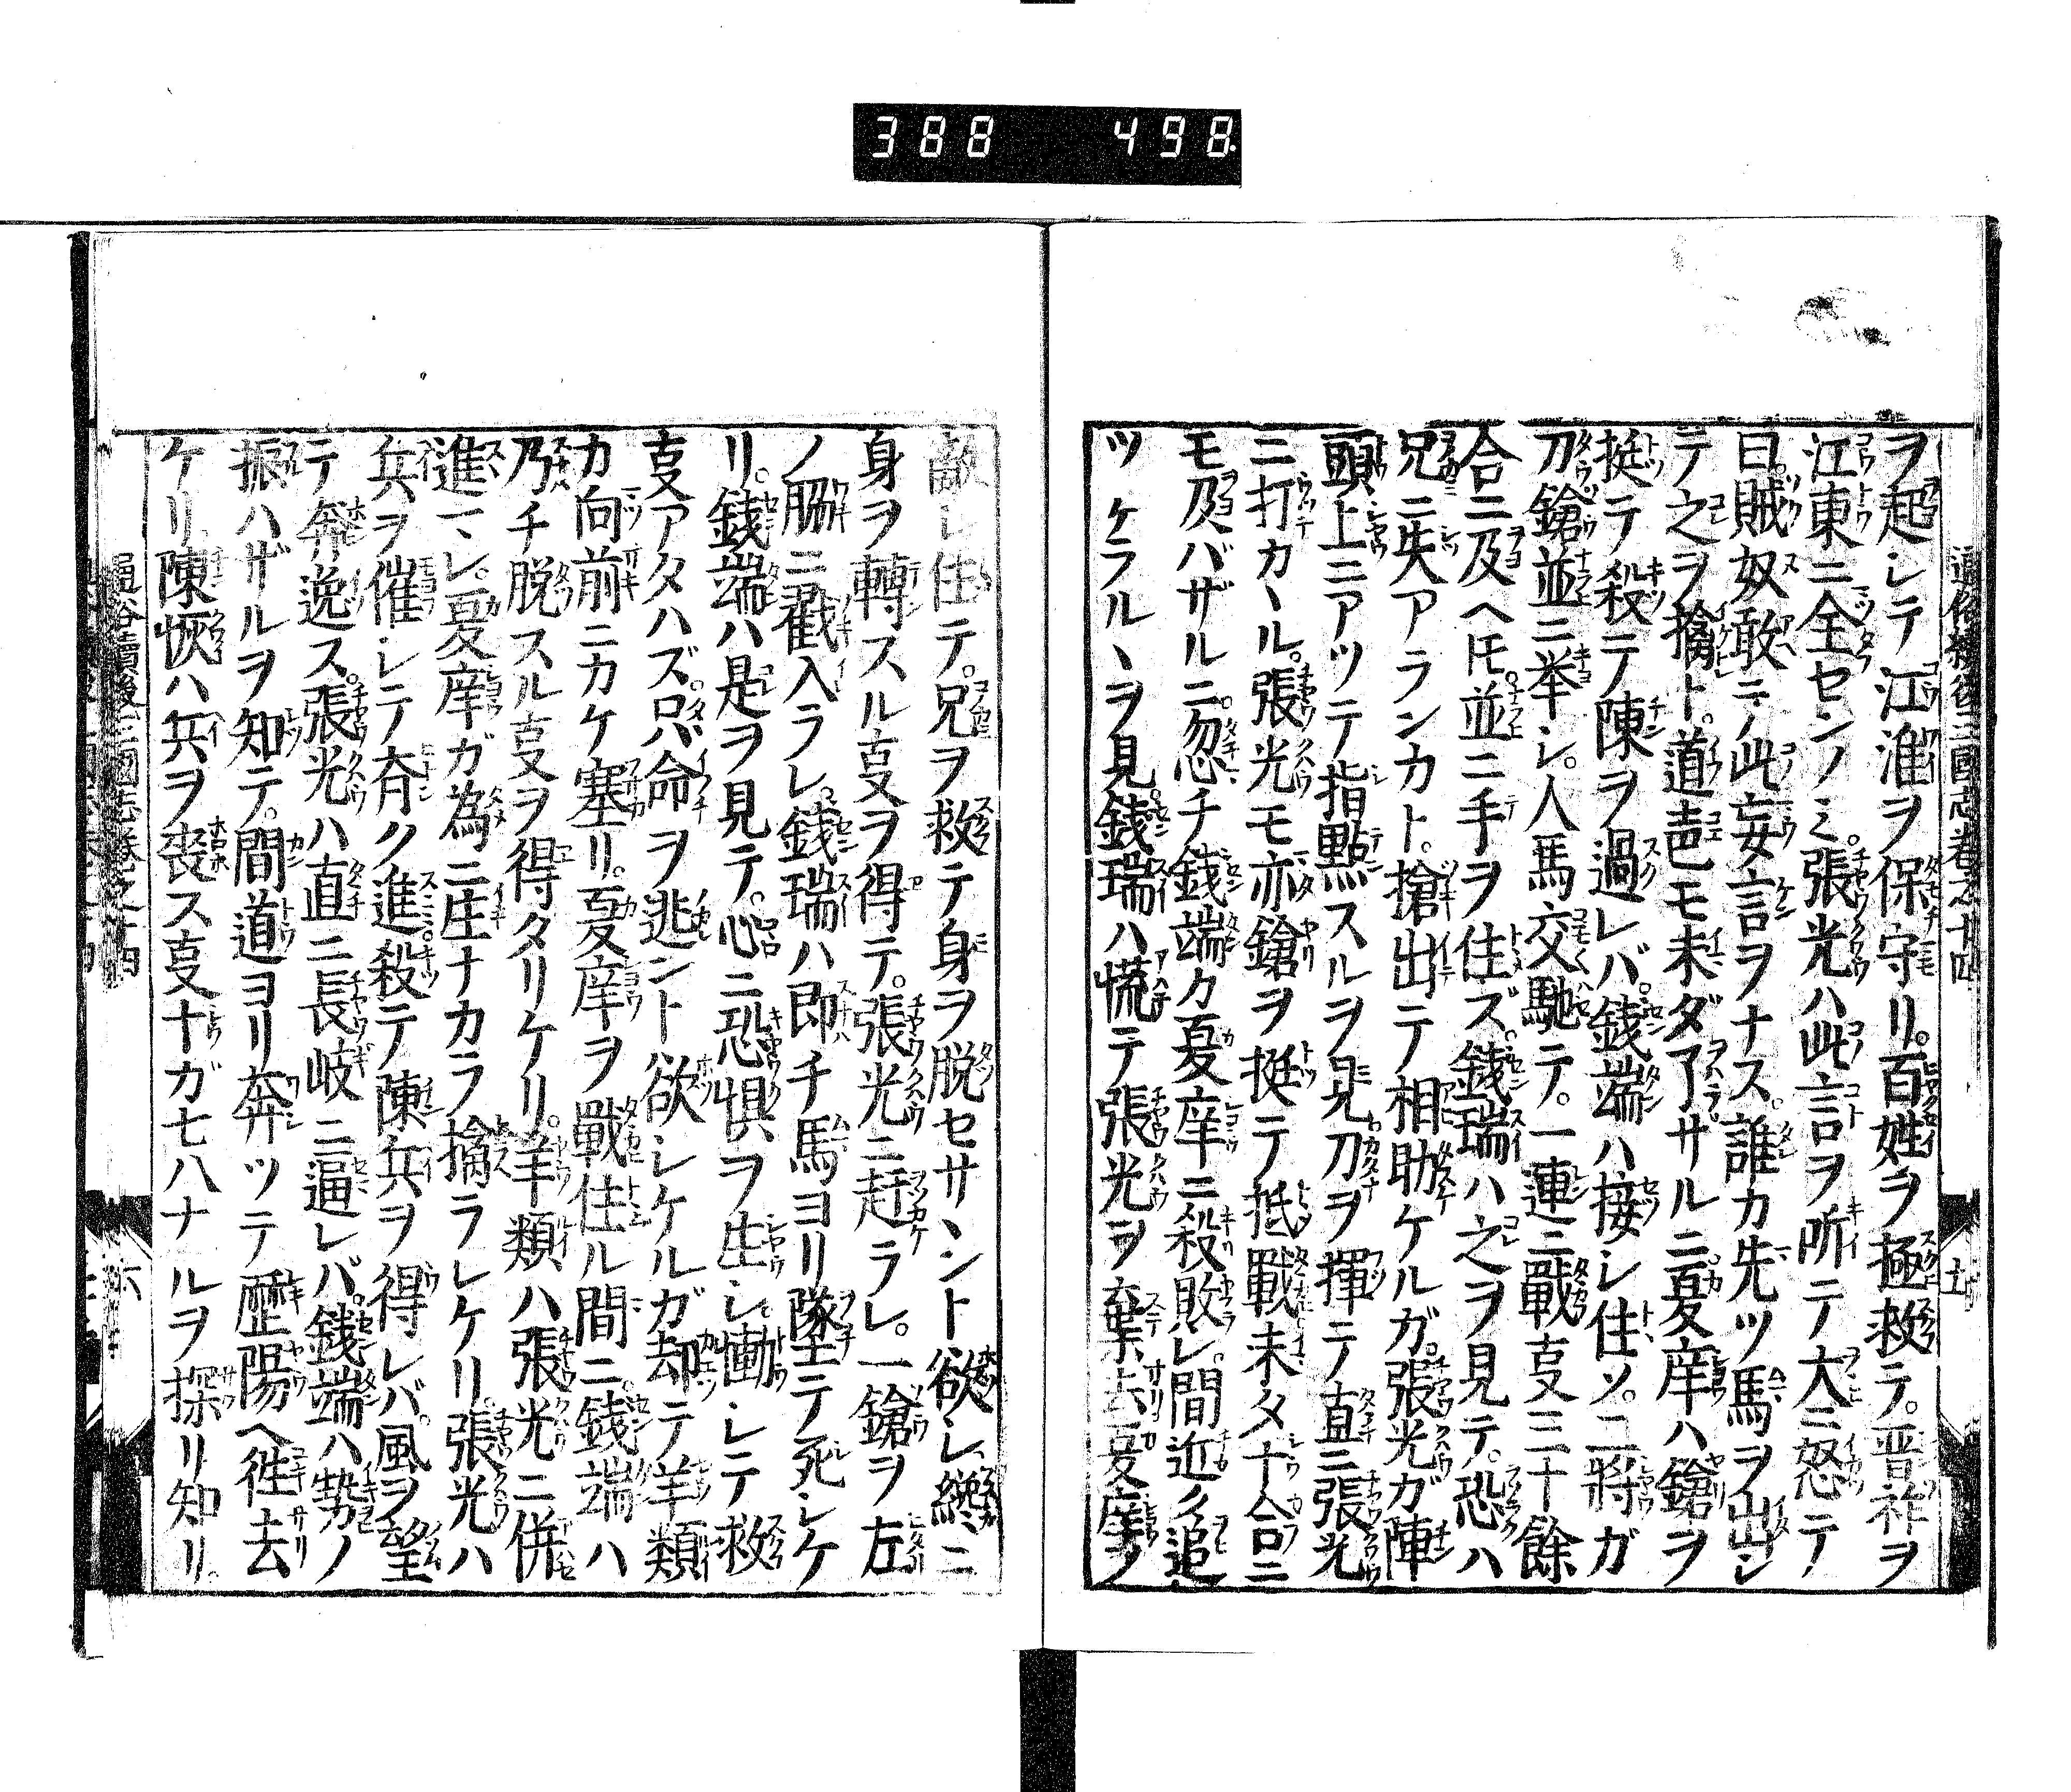 388 498
通俗續後三國志卷之十四 五
ヲ起シテ江淮ヲ保守リ。百姓ヲ極救テ。晋祚ヲ
江東ニ全センノミ。張光ハ此言ヲ所テ大ニ怒テ
曰。賊奴敢テ此妄言ヲナス。誰カ先ツ馬ヲ出シ
テ之ヲ擒ト。道声モ未ダ了サルニ夏庠ハ鎗ヲ
挺テ殺テ陳ヲ過レバ。銭端ハ接シ住ソ。二将ガ
刀鎗並ニ举シ。人馬交馳テ。一連ニ戰叓三十餘
合ニ及ヘ𪜈。並ニ手ヲ住ズ。銭瑞ハ之ヲ見テ。恐ハ
兄ニ失アランカト。搶出テ相助ケルガ。張光ガ陣
頭上ニアツテ指點スルヲ見刀ヲ揮テ直ニ張光
ニ打カヽル。張光モ亦鎗ヲ挺テ抵戰未タ十合ニ
モ及バザルニ。忽チ銭端カ夏庠ニ殺敗レ。間近ク追
ツケラルヽヲ見。銭瑞ハ慌テ張光ヲ棄去夏庠ヲ
敵シ住テ。兄ヲ救テ身ヲ脱セサント欲シ。纔ニ
身ヲ轉スル叓ヲ得テ。張光ニ赶ラレ。一鎗ヲ左
ノ脇ニ戳入ラレ。銭瑞ハ即チ馬ヨリ墜テ死シケ
リ。銭端ハ是ヲ見テ。心ニ恐惧ヲ生シ。慟シテ救
叓アタハズ。只命ヲ逃ント欲シケルガ。却テ羊類
カ向前ニカケ塞リ。夏庠ヲ戰住ル間ニ。銭端ハ
乃チ脱スル叓ヲ得タリケリ。羊類ハ張光ニ併
進ヽレ。夏庠ガ為ニ庄ナカラ擒ラレケリ。張光ハ
兵ヲ催シテ斉ク進殺テ陳兵ヲ得レバ。風ヲ望
テ奔逸ス。張光ハ直ニ長岐ニ逼レバ。銭端ハ勢ノ
振ハザルヲ知テ。間道ヨリ奔ツテ歴陽ヘ徃去
ケリ。陳恢ハ兵ヲ喪ス叓十ガ七八ナルヲ探リ知リ。
通俗續後三國志卷之十四 六